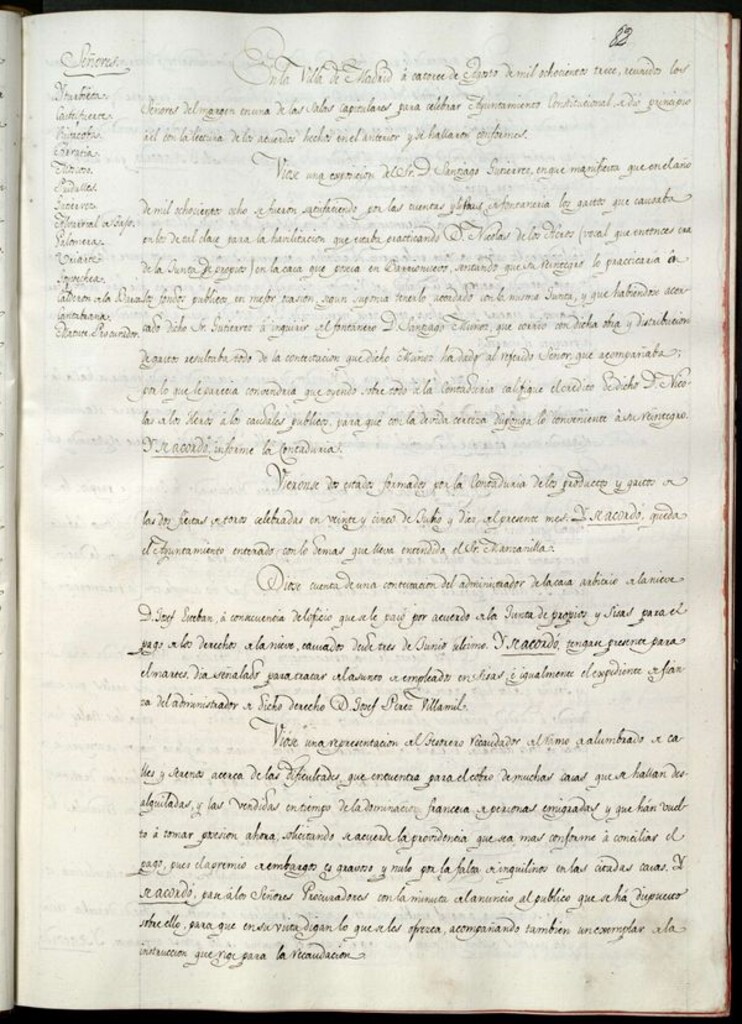 82
Señores.
Yturbieta.
Castefuerte.
Goicoechea.
Palomera.
Uriarte.
Calderon de la Barca.
Santibana.
Matute Procurador.
En la Villa de Madrid á catorce de Agosto de mil ochocientos trece, reunidos los
Señores del margen en una de las Salas Capitulares para celebrar Ayuntamiento Constitucional, se dio principio
á él con la lectura de los acuerdos hechos en el anterior y se hallaron conformes.
Viose una exposicion del Sr. D. Santiago Gutierrez, en que manifiesta que en el año
de mil ochocientos ocho se fueron satisfaciendo por las cuentas y listas de fontaneria los gastos que causaba
en los de tal clase para la habilitacion que estaba practicando D. Nicolas de los Heros (vocal que entonces era
de la Junta de propios) en la casa que poseia en Barrionuevo, sentando que su reintegro lo practicaria á
los fondos publicos en mejor ocasion, segun suponia tenerlo acordado con la misma Junta, y que habiendose acer-
cado dicho Sr. Gutierrez á inquirir del fontanero D. Santiago Muñoz, que corrió con dicha obra y distribucion
de gastos resultaba todo de la contextacion que dicho Muñoz ha dado al referido Señor, que acompañaba;
por lo que le parecia convendria que oyendo sobre todo á la Contaduria califique el credito de dicho D. Nico-
las de los Heros á los caudales publicos, para que con la devida certeza disponga lo conveniente á su reintegro.
Y se acordó, informe la Contaduria.
Vieronse dos estados formados por la Contaduria de los productos y gastos de
las dos fiestas de toros celebradas en veinte y cinco de Julio y dies del presente mes. Y se acordó, queda
el Ayuntamiento enterado con lo demas que lleva entendido el Sr. Manzanilla.
Diose cuenta de una contextacion del administrador de la casa arbitrio de la nieve
D. Josef Esteban, á consecuencia del oficio que se le pasó por acuerdo de la Junta de propios y Sisas para el
pago de los derechos de la nieve, causados desde tres de Junio ultimo. Y se acordó, tengase presente para
el martes, dia señalado para tratar del asunto de empleados en Sisas, é igualmente el expediente de fian-
za del administrador de dicho derecho D. Josef Perez Villamil.
Viose una representacion del Tesorero recaudador del ramo de alumbrado de ca-
lles y serenos acerca de las dificultades que encuentra para el cobro de muchas casas que se hallan des-
alquiladas, y las vendidas en tiempo de la dominacion francesa á personas emigradas y que hán vuel-
to á tomar posesion ahora; solicitando se acuerde la providencia que sea mas conforme á conciliar el
pago, pues el apremio de embargos es gravoso y nulo por la falta de inquilinos en las citadas casas. Y
se acordó, pase á los Señores Procuradores con la minuta del anuncio al publico que se há dispuesto
sobre ello, para que en su vista digan lo que se les ofrezca, acompañando tambien un exemplar de la
instruccion que rige para la recaudacion.